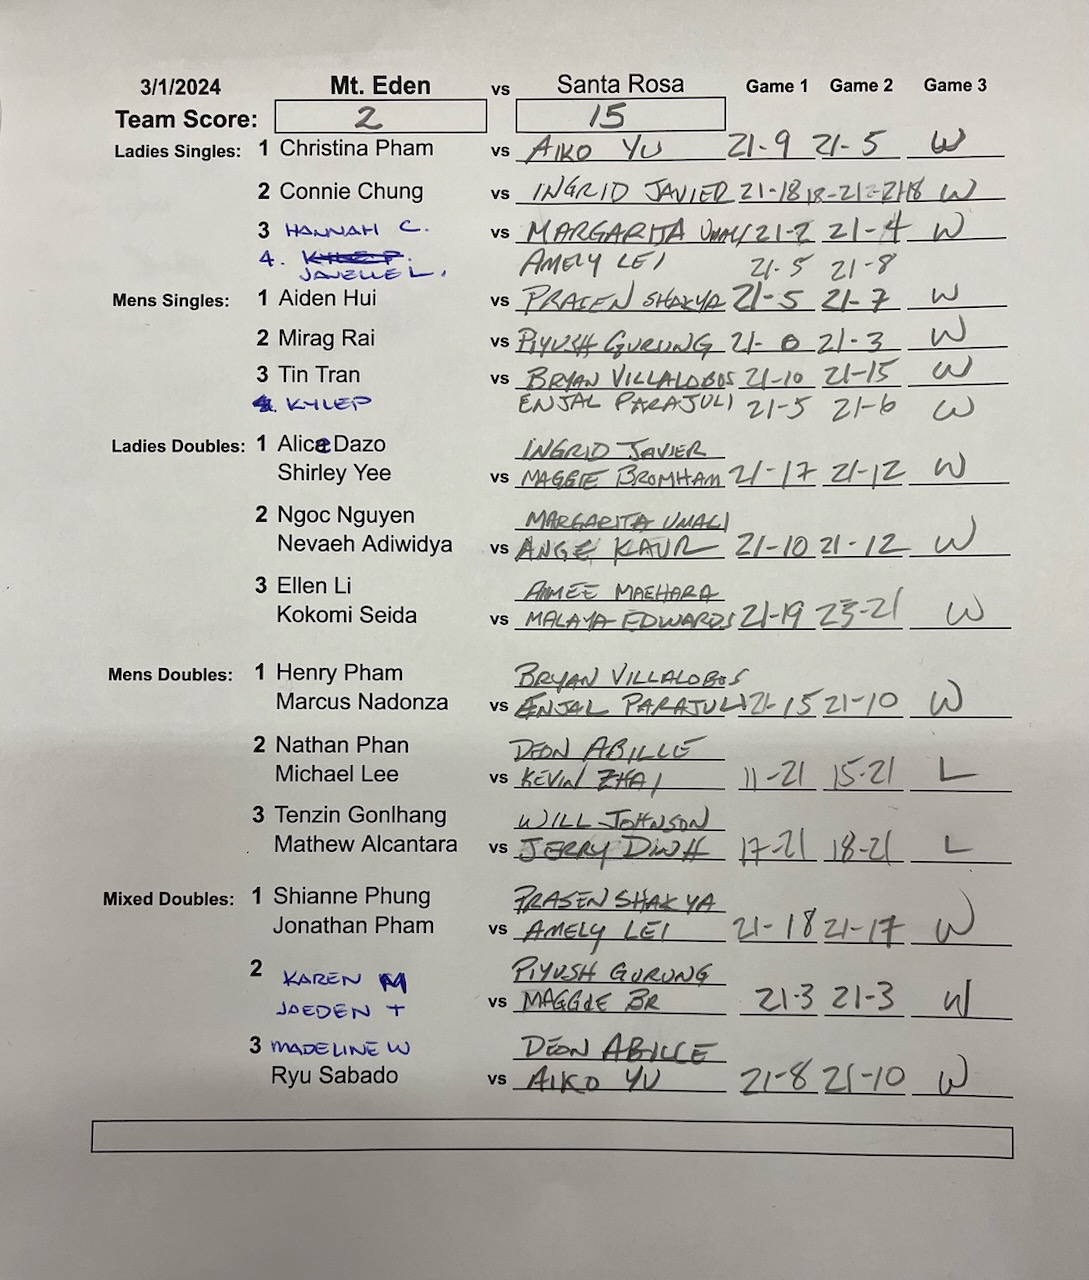 3/1/2024 Mt. Eden vs Santa Rosa Game 1 Game 2 Game 3
Team Score: 2 15
Ladies Singles: 1 Christina Pham vs AIKO YU 21-9 21-5 W
2 Connie Chung vs INGRID JAVIER 21-18 18-21 21-18 W
3 HANNAH C. vs MARGARITA UMALI 21-2 21-4 W
4. KYLE P. AMELY LEI 21-5 21-8
JANELLE L.
Mens Singles: 1 Aiden Hui vs PRASEN SHAKYA 21-5 21-7 W
2 Mirag Rai vs PIYUSH GURUNG 21-0 21-3 W
3 Tin Tran vs BRYAN VILLALOBOS 21-10 21-15 W
4. KYLE P ENJAL PARAJULI 21-5 21-6 W
Ladies Doubles: 1 Alice Dazo INGRID JAVIER
Shirley Yee vs MAGGIE BROMHAM 21-17 21-12 W
2 Ngoc Nguyen MARGARITA UMALI
Nevaeh Adiwidya vs ANGE KAUR 21-10 21-12 W
3 Ellen Li AIMEE MAEHARA
Kokomi Seida vs MALAYA EDWARDS 21-19 23-21 W
Mens Doubles: 1 Henry Pham BRYAN VILLALOBOS
Marcus Nadonza vs ENJAL PARAJULI 21-15 21-10 W
2 Nathan Phan DEON ABILLE
Michael Lee vs KEVIN ZHAI 11-21 15-21 L
3 Tenzin Gonlhang WILL JOHNSON
Mathew Alcantara vs JERRY DINH 17-21 18-21 L
Mixed Doubles: 1 Shianne Phung PRASEN SHAKYA
Jonathan Pham vs AMELY LEI 21-18 21-17 W
2 KAREN M PIYUSH GURUNG
JAEDEN T vs MAGGIE BR 21-3 21-3 W
3 MADELINE W DEON ABILLE
Ryu Sabado vs AIKO YU 21-8 21-10 W